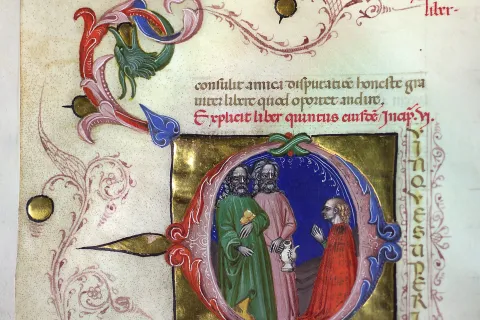 liber·
consulit amica disputatiõe honeste gra
inter libere quod oportet audire,
Explicit liber quintus eiusdẽ Incipͭ VI.
IN QVES
PERI